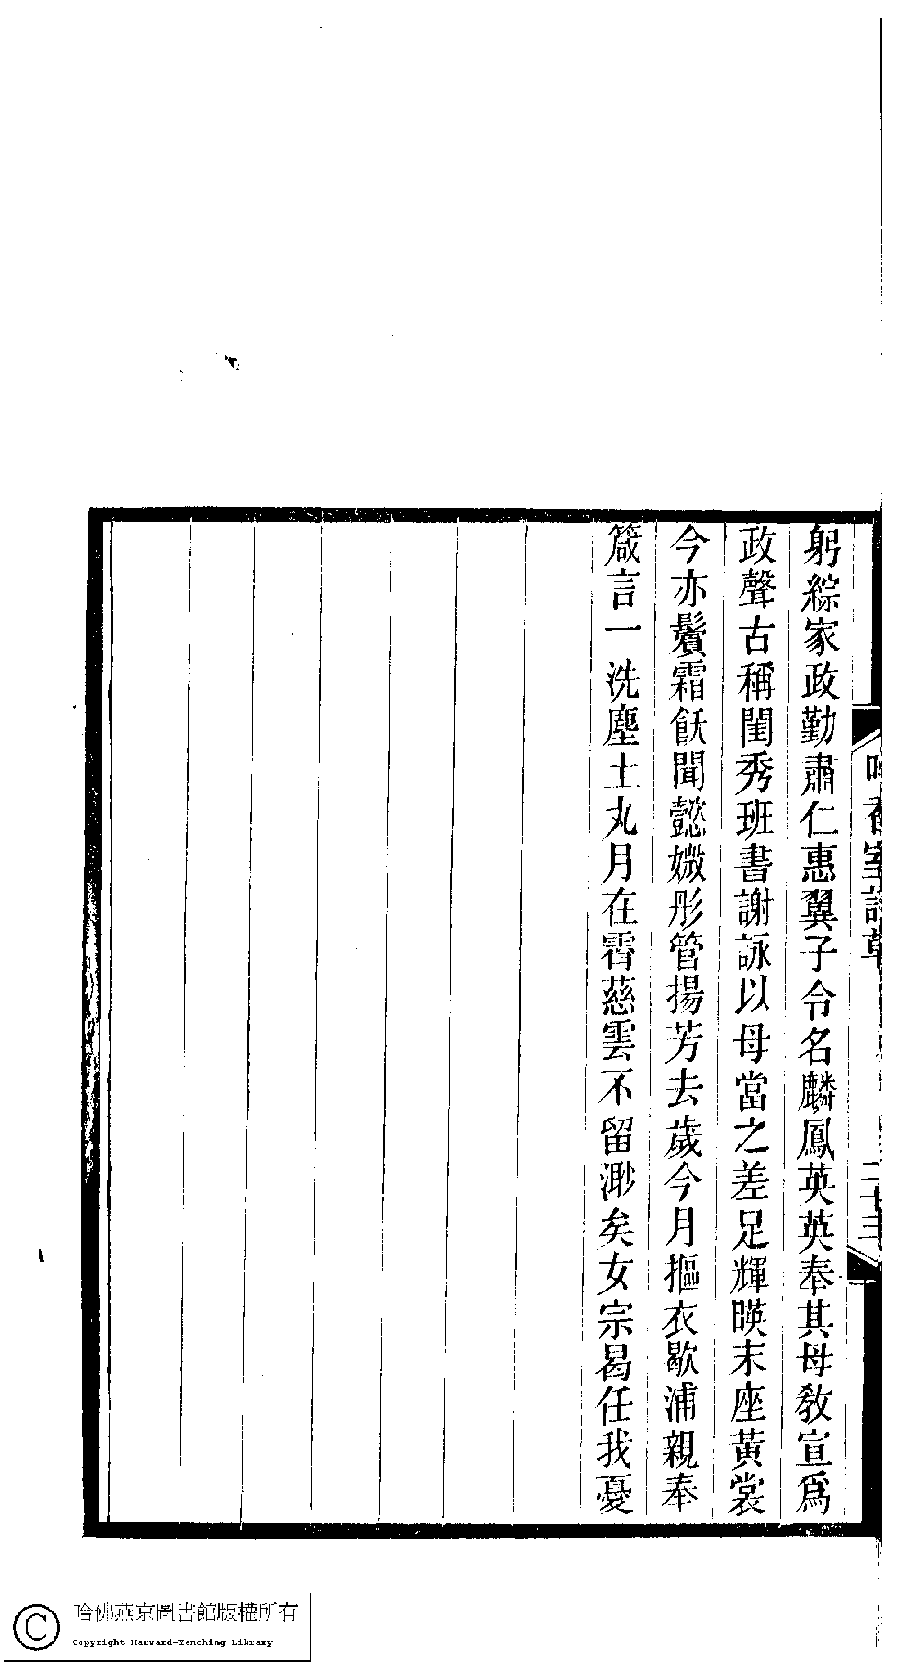 躬綜家政勤肅仁惠翼子令名麟鳳英英奉其母敎宣爲
政聲古稱閨秀班書謝詠以母當之差足輝暎末座黃裳
今亦鬢霜飫聞懿媺彤管揚芳去歲今月摳衣歇浦親奉
箴言一洗塵土丸月在霄慈雲不留渺矣女宗曷任我憂
香室詩草
二十三
哈佛燕京圖書館版權所有
Copyright Harvard-Yenching Library